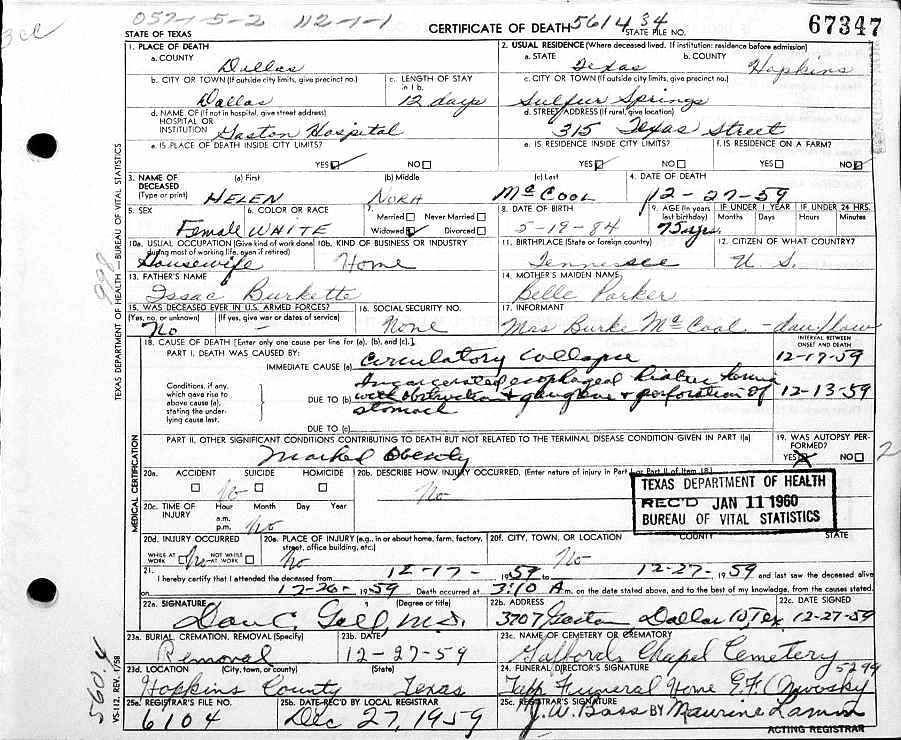 057-5-2 112-1-1 CERTIFICATE OF DEATH 561434 67347
STATE OF TEXAS STATE FILE NO.
1. PLACE OF DEATH 2. USUAL RESIDENCE (Where deceased lived. If institution: residence before admission)
a. COUNTY Dallas a. STATE Texas b. COUNTY Hopkins
b. CITY OR TOWN (If outside city limits, give precinct no.) Dallas c. LENGTH OF STAY in 1 b. 12 days c. CITY OR TOWN (If outside city limits, give precinct no.) Sulfur Springs
d. NAME OF (If not in hospital, give street address) HOSPITAL OR INSTITUTION Gaston Hospital d. STREET ADDRESS (If rural, give location) 315 Texas Street
e. IS PLACE OF DEATH INSIDE CITY LIMITS? e. IS RESIDENCE INSIDE CITY LIMITS? f. IS RESIDENCE ON A FARM?
YES NO YES NO YES NO
3. NAME OF DECEASED (Type or print) (a) First (b) Middle (c) Last 4. DATE OF DEATH
HELEN NORA McCOOL 12-27-59
5. SEX 6. COLOR OR RACE 7. Married Never Married Widowed Divorced 8. DATE OF BIRTH 9. AGE (In years last birthday) IF UNDER 1 YEAR Months Days IF UNDER 24 HRS. Hours Minutes
Female WHITE 5-19-84 75 yrs.
10a. USUAL OCCUPATION (Give kind of work done during most of working life, even if retired) 10b. KIND OF BUSINESS OR INDUSTRY 11. BIRTHPLACE (State or foreign country) 12. CITIZEN OF WHAT COUNTRY?
Housewife Home Tennessee U. S.
13. FATHER'S NAME 14. MOTHER'S MAIDEN NAME
Issac Burkette Belle Parker
15. WAS DECEASED EVER IN U.S. ARMED FORCES? 16. SOCIAL SECURITY NO. 17. INFORMANT
(Yes, no, or unknown) (If yes, give war or dates of service)
No - None Mrs Burke McCool - dau/law
18. CAUSE OF DEATH [Enter only one cause per line for (a), (b), and (c).] INTERVAL BETWEEN ONSET AND DEATH
PART I. DEATH WAS CAUSED BY:
IMMEDIATE CAUSE (a) Circulatory collapse 12-17-59
Conditions, if any, which gave rise to above cause (a), stating the underlying cause last.
DUE TO (b) Incarcerated esophageal hiatus hernia
with obstruction + gangrene + perforation of 12-13-59
stomach
DUE TO (c)
PART II. OTHER SIGNIFICANT CONDITIONS CONTRIBUTING TO DEATH BUT NOT RELATED TO THE TERMINAL DISEASE CONDITION GIVEN IN PART I(a) 19. WAS AUTOPSY PERFORMED?
Marked Obesity YES NO 2
20a. ACCIDENT SUICIDE HOMICIDE 20b. DESCRIBE HOW INJURY OCCURRED. (Enter nature of injury in Part I or Part II of Item 18.)
No No
TEXAS DEPARTMENT OF HEALTH
REC'D JAN 11 1960
BUREAU OF VITAL STATISTICS
20c. TIME OF INJURY Hour Month Day Year
a.m.
p.m. No
20d. INJURY OCCURRED 20e. PLACE OF INJURY (e.g., in or about home, farm, factory, street, office building, etc.) 20f. CITY, TOWN, OR LOCATION COUNTY STATE
WHILE AT WORK NOT WHILE AT WORK No No No
21. I hereby certify that I attended the deceased from 12-17- 1959 to 12-27-, 1959 and last saw the deceased alive
on 12-26- 1959 Death occurred at 3:10 A.m. on the date stated above, and to the best of my knowledge, from the causes stated.
22a. SIGNATURE (Degree or title) 22b. ADDRESS 22c. DATE SIGNED
Dan C. M.D. 3707 Gaston Dallas 10, Tex. 12-27-59
23a. BURIAL, CREMATION, REMOVAL (Specify) 23b. DATE 23c. NAME OF CEMETERY OR CREMATORY
Removal 12-27-59 Gaffords Chapel Cemetery
23d. LOCATION (City, town, or county) (State) 24. FUNERAL DIRECTOR'S SIGNATURE 5299
Hopkins County Texas Tapp Funeral Home E.F.
25a. REGISTRAR'S FILE NO. 25b. DATE REC'D BY LOCAL REGISTRAR 25c. REGISTRAR'S SIGNATURE
6104 Dec 27, 1959 J.W. Bass BY Maurine
ACTING REGISTRAR
TEXAS DEPARTMENT OF HEALTH — BUREAU OF VITAL STATISTICS
998
MEDICAL CERTIFICATION
VS-112, REV. 1/58
560.4